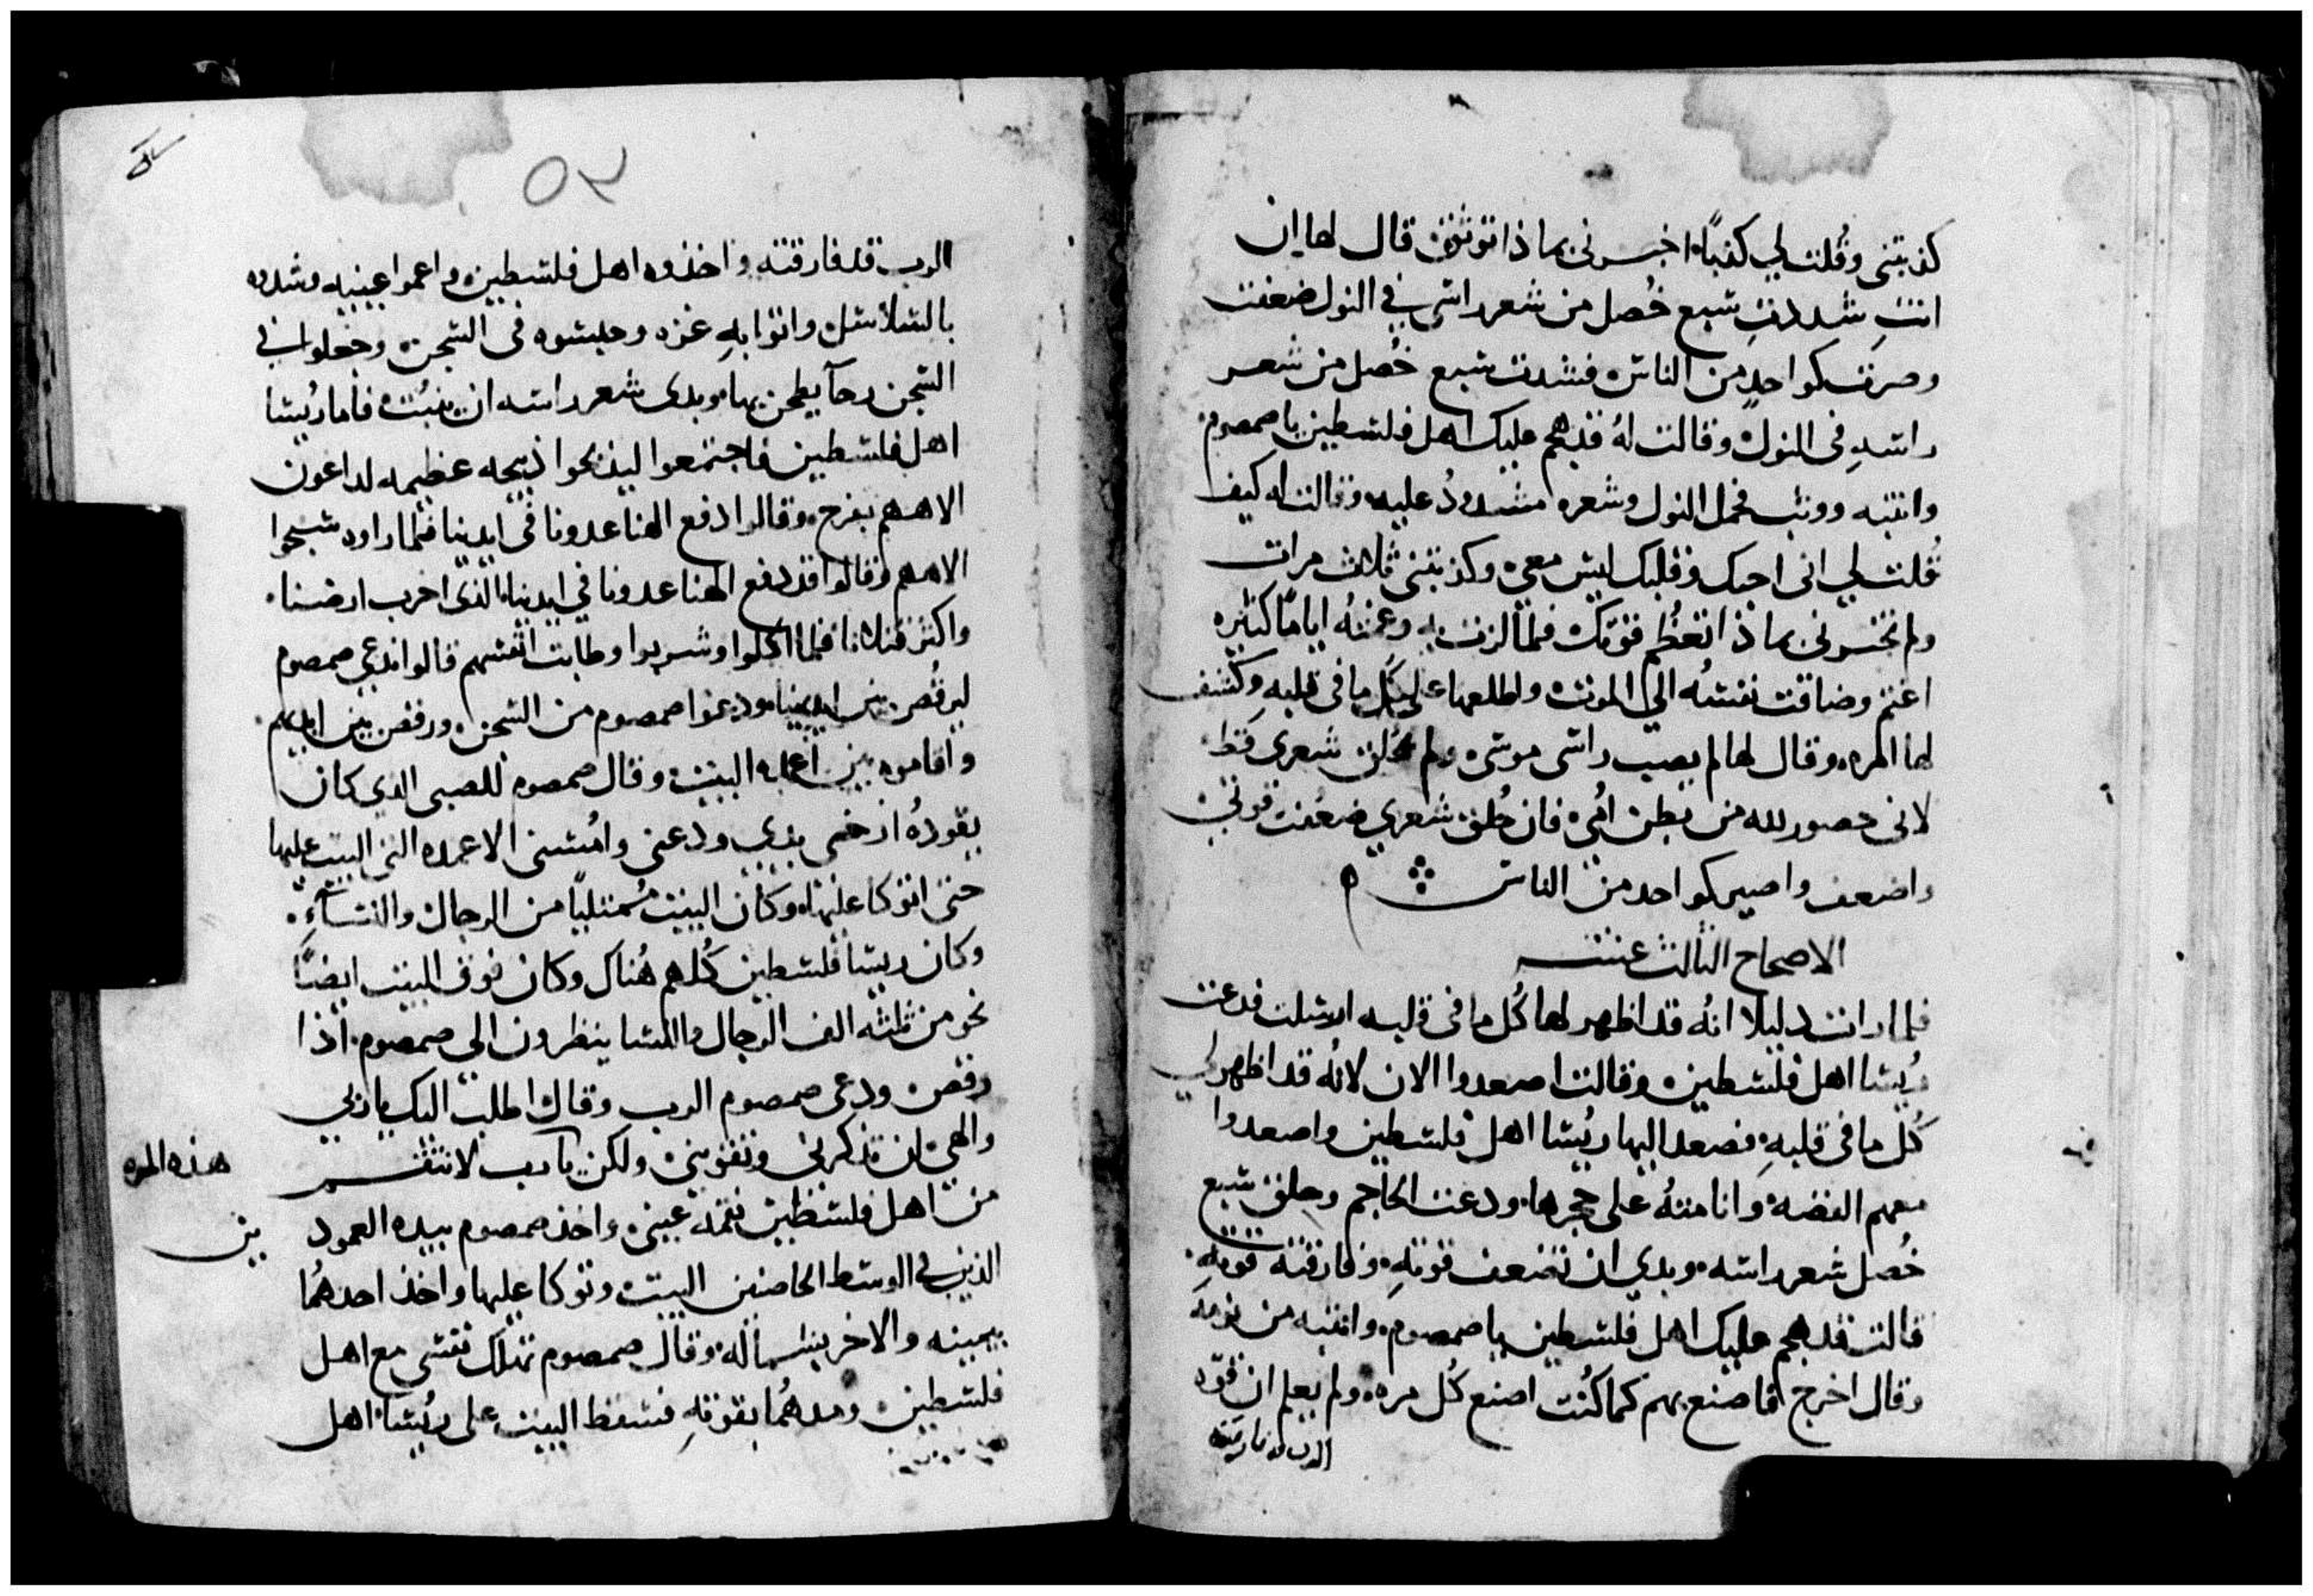 كذبتنى وقُلت لي كذباً اخبرنى بماذا توثق قال لها ان
انتِ شددتِ سبع خُصل من شعر راسى في النول ضعفت
وصرت كواحدٍ من الناس فشدت سبع خُصل من شعر
راسهِ فى النول وقالت لهُ قد هجم عليك اهل فلسطين يا صمصوم
وانتبه ووثب فحمل النول وشعره مشدودُ عليه وقالت له كيف
قُلت لي انى احبك وقلبك ليس معى وكذبتنى ثلاث مرات
ولم تخبرنى بماذا تعظُم قوتك فلما لزت به وغمتهُ اياماً كثيره
اغتم وضاقت نفسُه الي الموت واطلعها على كُل ما فى قلبهِ وكشف
لها امره وقال لها لم يصب راسى موسى ولم يحلق شعرى قط
لانى حصور لله من بطن اُمى فان حُلق شعري ضعفت قوتي
واضعف واصير كواحد من الناس
الاصحاح الثالث عشر
فلما رات دليلا انهُ قد اظهر لها كُل ما فى قلبه ارسلت فدعت
رُيسا اهل فلسطين وقالت اصعدوا الان لانُه قد اظهر لي
كُل ما فى قلبهِ فصعد اليها ريُسا اهل فلسطين واصعدوا
معهم الفضه وانامتهُ على حجرها ودعت الحاجم وحلق سبع
خُصل شعر راسه وبدي ان تضعف قوتهِ وفارقته قوتهِ
قالت قد هجم عليك اهل فلسطين يا صمصوم وانتبه من نومهِ
وقال اخرج فاصنع بهم كما كُنت اصنع كُل مره ولم يعلم ان قوّه
الرب قد فارقته
٥٣
الرب قد فارقته واخذوه اهل فلسطين واعموا عينيه وشدوه
بالسلاسل واتوا بهِ غزه وحبسوه فى السجن وجعلوا في
السجن رحاً يطحن بها وبدى شعر راسه ان ينبُت فاما ريُسا
اهل فلسطين فاجتمعوا ليذبحوا ذبيحه عظيمه لداعون
الاههم بفرح وقالوا دفع الهنا عدونا فى ايدينا فلما راوه سبحوا
الاههم وقالوا قد دفع الهنا عدونا في ايدينا الذى اخرب ارضنا
واكثر قتلانا فلما اكلوا وشربوا وطابت انفسهم قالوا ندعي صمصوم
ليرقُص بين ايدينا ودعوا صمصوم من السجن ورقص بين ايديهم
واقاموه بين اعمده البيت وقال صمصوم للصبى الذي كان
يقودهُ ارخى يدي ودعنى وامُسنى الاعمده التى البيت عليها
حتى اتوكا عليها وكان البيت مُمتلياً من الرجال والنسآء
وكان ريسا فلسطين كُلهم هُناك وكان فوق البيت ايضاً
نحو من ثلثه الف الرجال والنسا ينظرون الي صمصوم اذا
رقص ودعى صمصوم الرب وقال اطلب اليك ياربي
والهي ان تذكرني وتقوينى ولكن يارب لانتقم
هذه المره
من اهل فلسطين نقمة عينى واخذ صمصوم بيده العمود
ين
الذين في الوسط الحاضنين البيت وتوكا عليها واخذ احدهُما
بيمينه والاخر بشماله وقال صمصوم تهلك نفسى مع اهل
فلسطين ومدهُما بقوتهِ فسقط البيت على ريُسا اهل